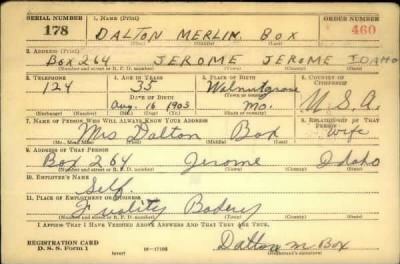 SERIAL NUMBER 1. NAME (Print) ORDER NUMBER
178 DALTON MERLIN BOX 460
(First) (Middle) (Last)
2. ADDRESS (Print)
BOX 264 JEROME JEROME IDAHO
(Number and street or R. F. D. number) (Town) (County) (State)
3. TELEPHONE 4. AGE IN YEARS 5. PLACE OF BIRTH 6. COUNTRY OF CITIZENSHIP
124 35 Walnutgrove
DATE OF BIRTH (Town or county)
Aug. 16 1905 Mo. U.S.A.
(Exchange) (Number) (Mo.) (Day) (Yr.) (State or country)
7. NAME OF PERSON WHO WILL ALWAYS KNOW YOUR ADDRESS 8. RELATIONSHIP OF THAT PERSON
Mrs Dalton Box Wife
(Mr., Mrs., Miss) (First) (Middle) (Last)
9. ADDRESS OF THAT PERSON
Box 264 Jerome Idaho
(Number and street or R. F. D. number) (Town) (County) (State)
10. EMPLOYER'S NAME
Self.
11. PLACE OF EMPLOYMENT OR BUSINESS
(Number and street or R. F. D. number) (Town) (County) (State)
I AFFIRM THAT I HAVE VERIFIED ABOVE ANSWERS AND THAT THEY ARE TRUE.
REGISTRATION CARD
D. S. S. Form 1 (over) 16—17105 Dalton M Box
(Registrant's signature)